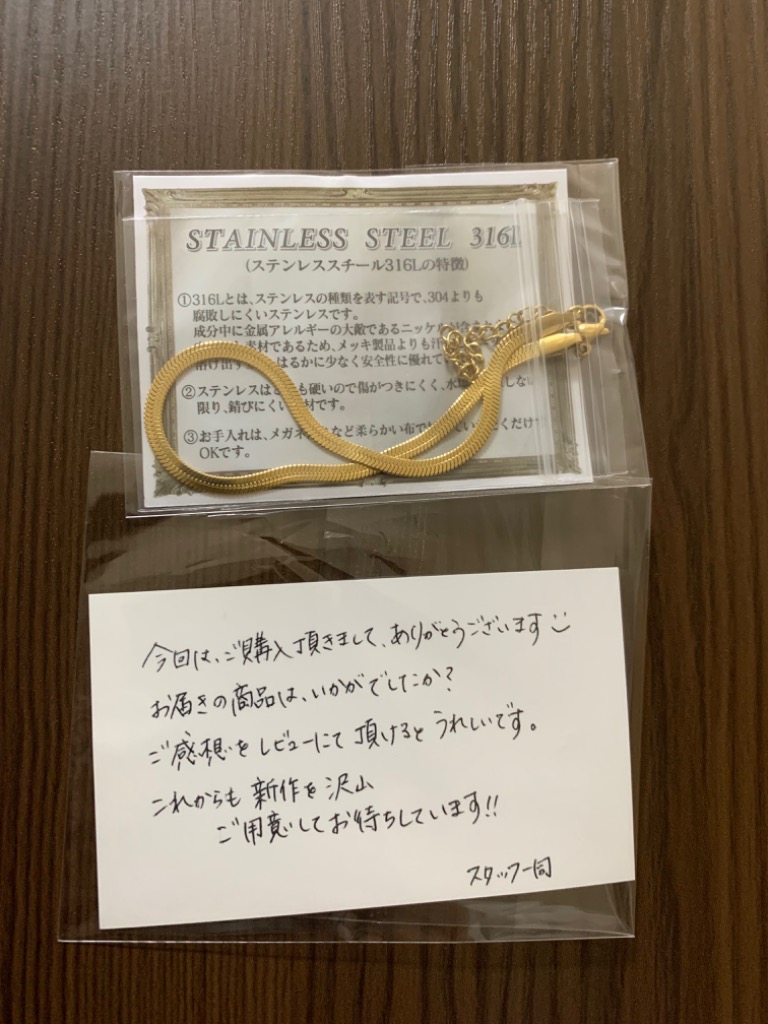 STAINLESS STEEL 316L
(ステンレススチール316Lの特徴)
①316Lとは、ステンレスの種類を表す記号で、304よりも
腐敗しにくいステンレスです。
成分中に金属アレルギーの大敵であるニッケルが含
素材であるため、メッキ製品よりも汗
溶け出す はるかに少なく安全性に優れて
②ステンレスは も硬いので傷がつきにくく、水 しない
限り、錆びにくい 材です。
③お手入れは、メガネ など柔らかい布で くだけで
OKです。
今回は、ご購入頂きまして、ありがとうございます
お届きの商品は、いかがでしたか?
ご感想をレビューにて頂けるとうれしいです。
これからも新作を沢山
ご用意してお待ちしています!!
スタッフ一同